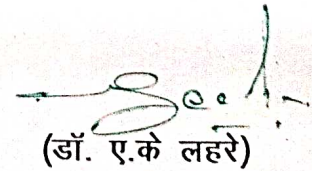 (डॉ. ए.के लहरे)